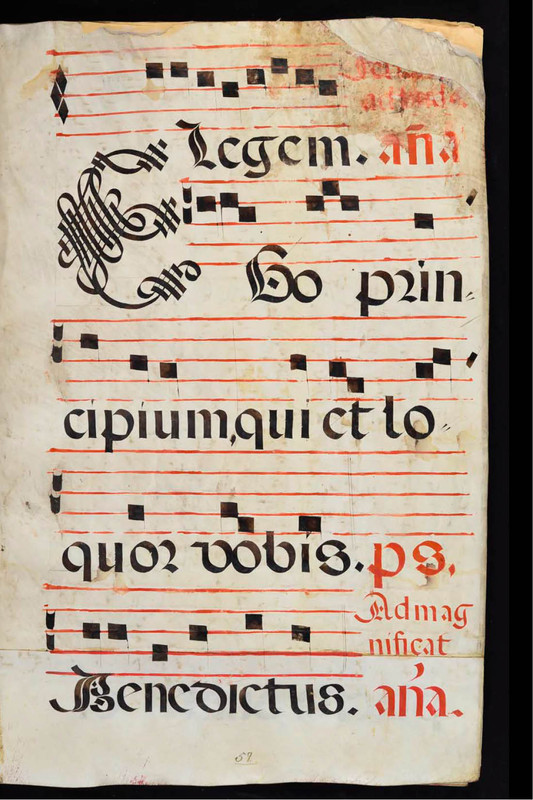 Legem. aña
Ego prin
cipium, qui et lo
quor vobis. ps.
Ad mag
nificat
Benedictus. aña.
57